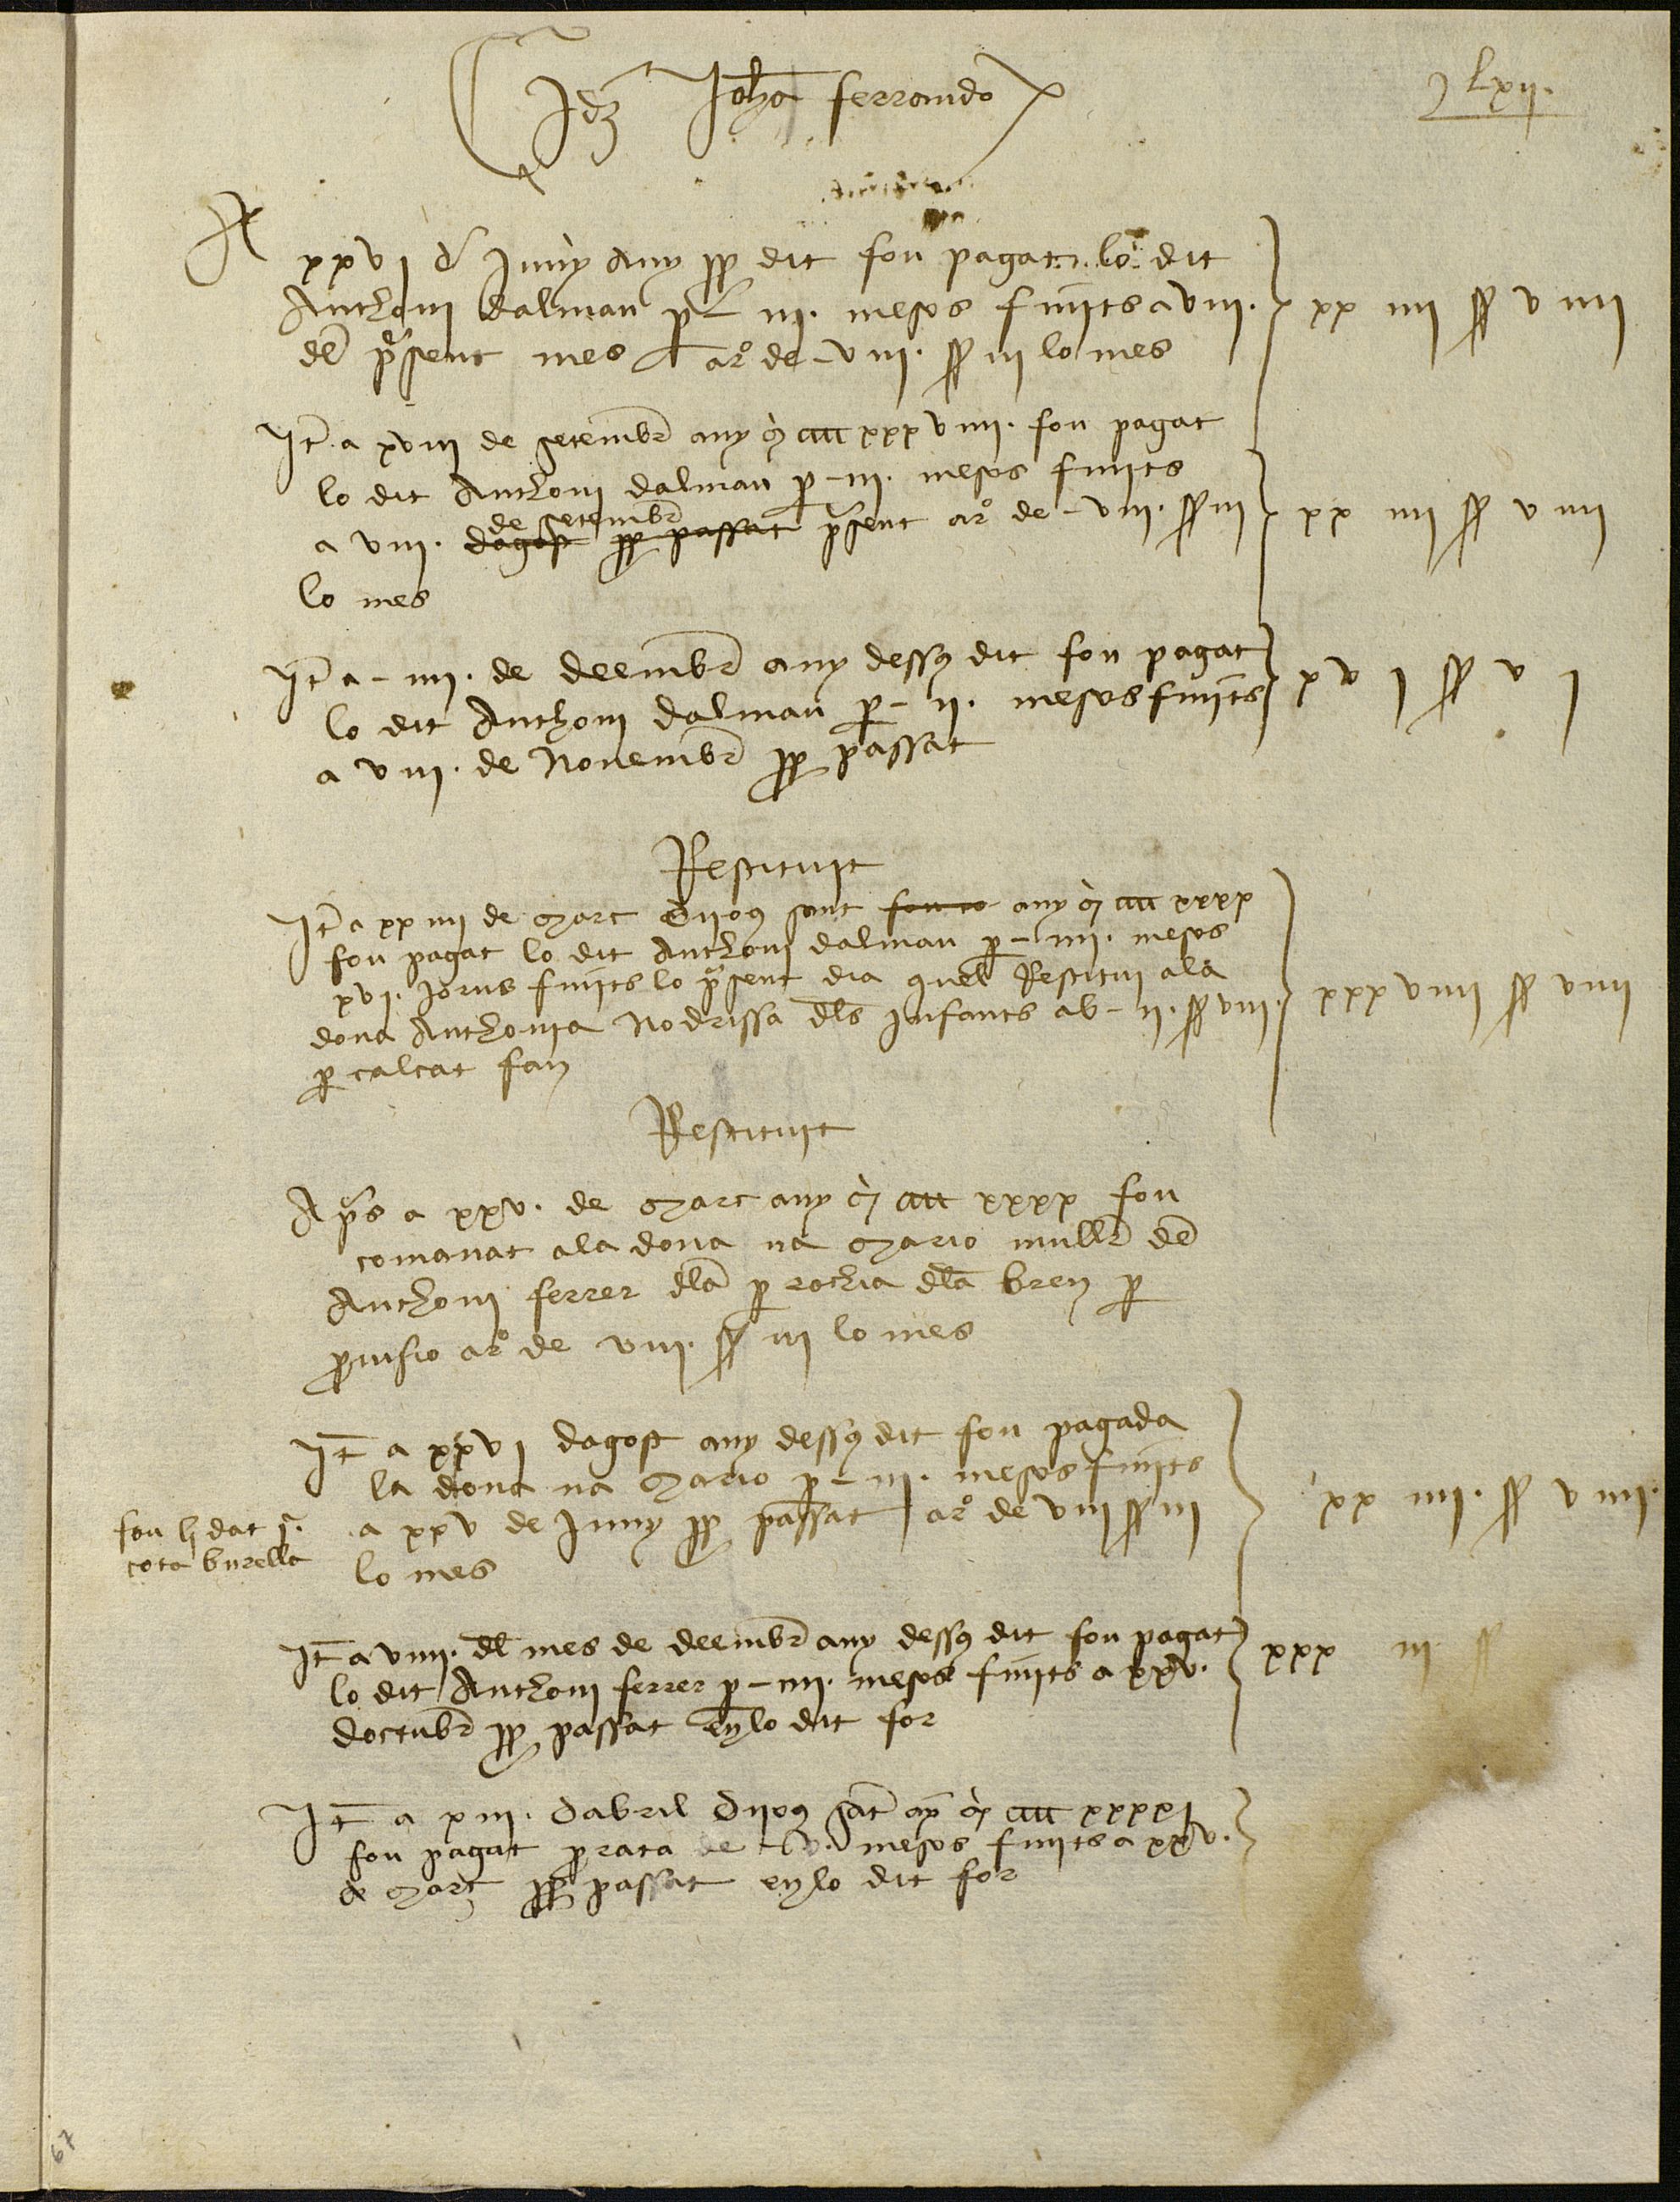 Idz Joha ferrando
lxii.
A xxvi d Juny Any pp dit fou pagat lo dit
Anthoni dalmau p iii. mesos finits a viii.
del present mes a ro de viii. ss iii lo mes
xx iiii ss v iiii
It a xviii de setembr any M cccc xxx viiii. fou pagat
lo dit Anthoni dalmau p iii. mesos finits
de setembr
a viii. dagost pp passat psent a ro de viii. ss iii
lo mes
xx iiii ss v iiii
It a iiii. de deembr any dessus dit fou pagat
lo dit Anthoni dalmau p ii. mesos finits
a viii. de Nouembr pp passat
xv i ss v i
Restituit
It a xx iiii de Març dijous sant any M cccc xxxx
fou pagat lo dit Anthoni dalmau p iiii. mesos
xvi. Jorns finits lo psent dia quel Restitui ala
dona Anthonia Nodrissa dls Infants ab ii. ss viii.
p calçat fan
xxx viiii ss viii
Restituit
Aps a xxv. de Març any M cccc xxxx fou
comanat ala dona na Mario mullr de
Anthoni ferrer dla prochia dla bren p
prouisio a ro de viii. ss iii lo mes
It a xxvi dagost any dessus dit fou pagada
la dona na Mario p iii. mesos finits
a xxv de Juny pp passat a ro de viii ss iii
lo mes
fou li dat i.
cota burella
xx iiii. ss. v iiii.
It a viiii. dl mes de deembr any dessus dit fou pagat
lo dit Anthoni ferrer p iiii. mesos finits a xxv.
doctubr pp passat en lo dit for
xxx iii ss
It a xiii. dabril dijous sant any M cccc xxxxi
fou pagat prata de v. mesos finits a xxv.
de Març pp passat en lo dit for
67